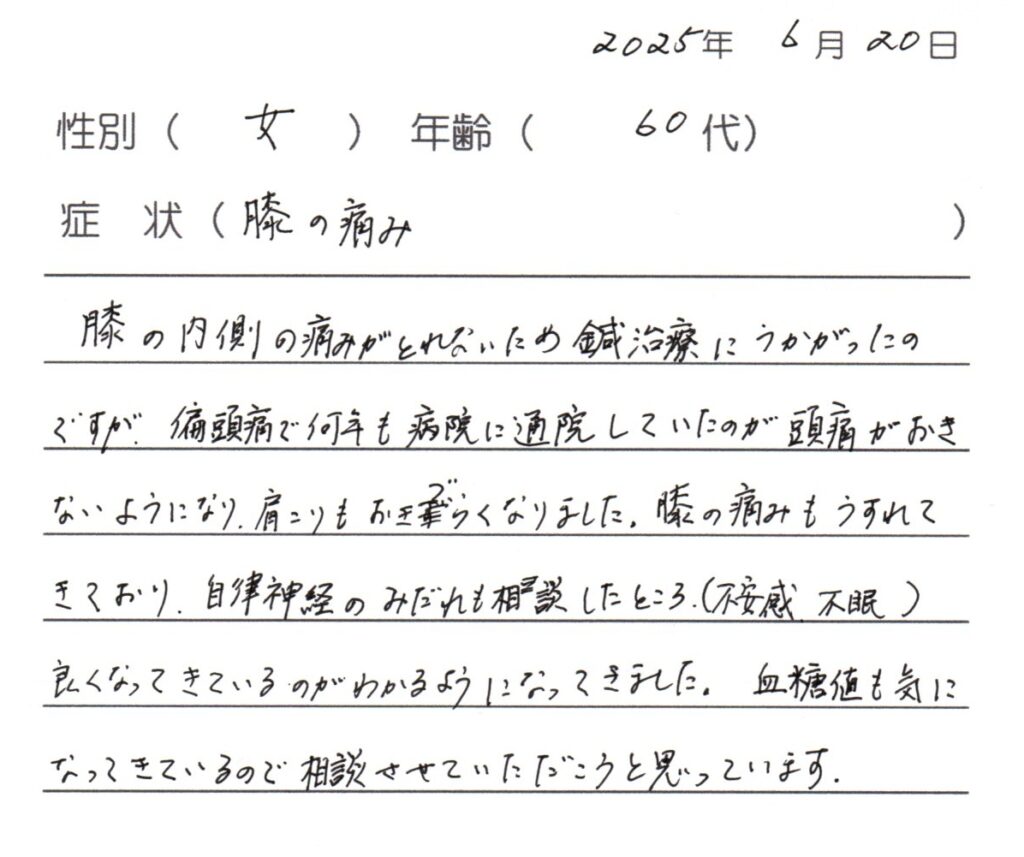 2025年 6月20日
性別（ 女 ） 年齢（ 60代）
症 状（膝の痛み ）
膝の内側の痛みがとれないため鍼治療にうかがったの
ですが、偏頭痛で何年も病院に通院していたのが頭痛がおき
ないようになり、肩こりもおきづらくなりました。膝の痛みもうすれて
きており、自律神経のみだれも相談したところ、（不安感、不眠）
良くなってきているのがわかるようになってきました。 血糖値も気に
なってきているので相談させていただこうと思っています。